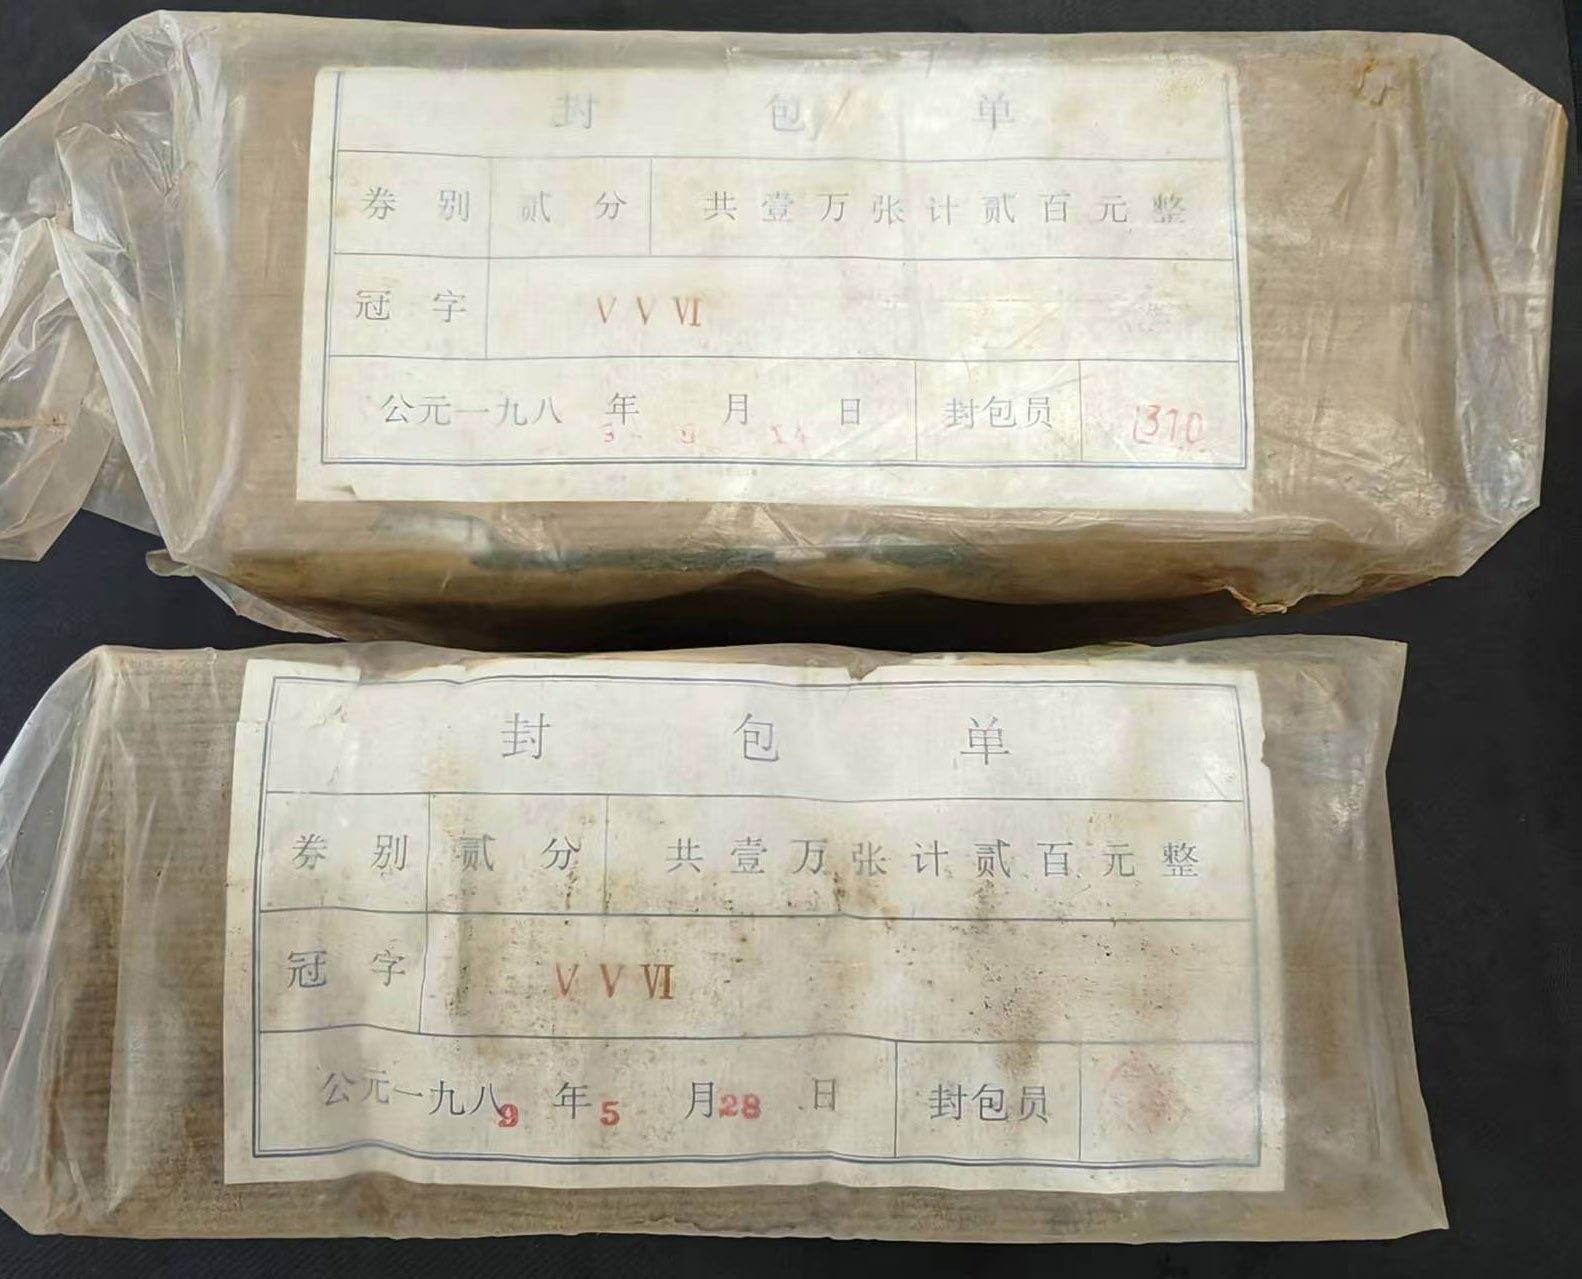 封包单
券别 贰分 共壹万张计贰百元整
冠字 ⅤⅤⅥ
公元一九八 年 月 日 封包员 1310
封包单
券别 贰分 共壹万张计贰百元整
冠字 ⅤⅤⅥ
公元一九八9年5月28日 封包员